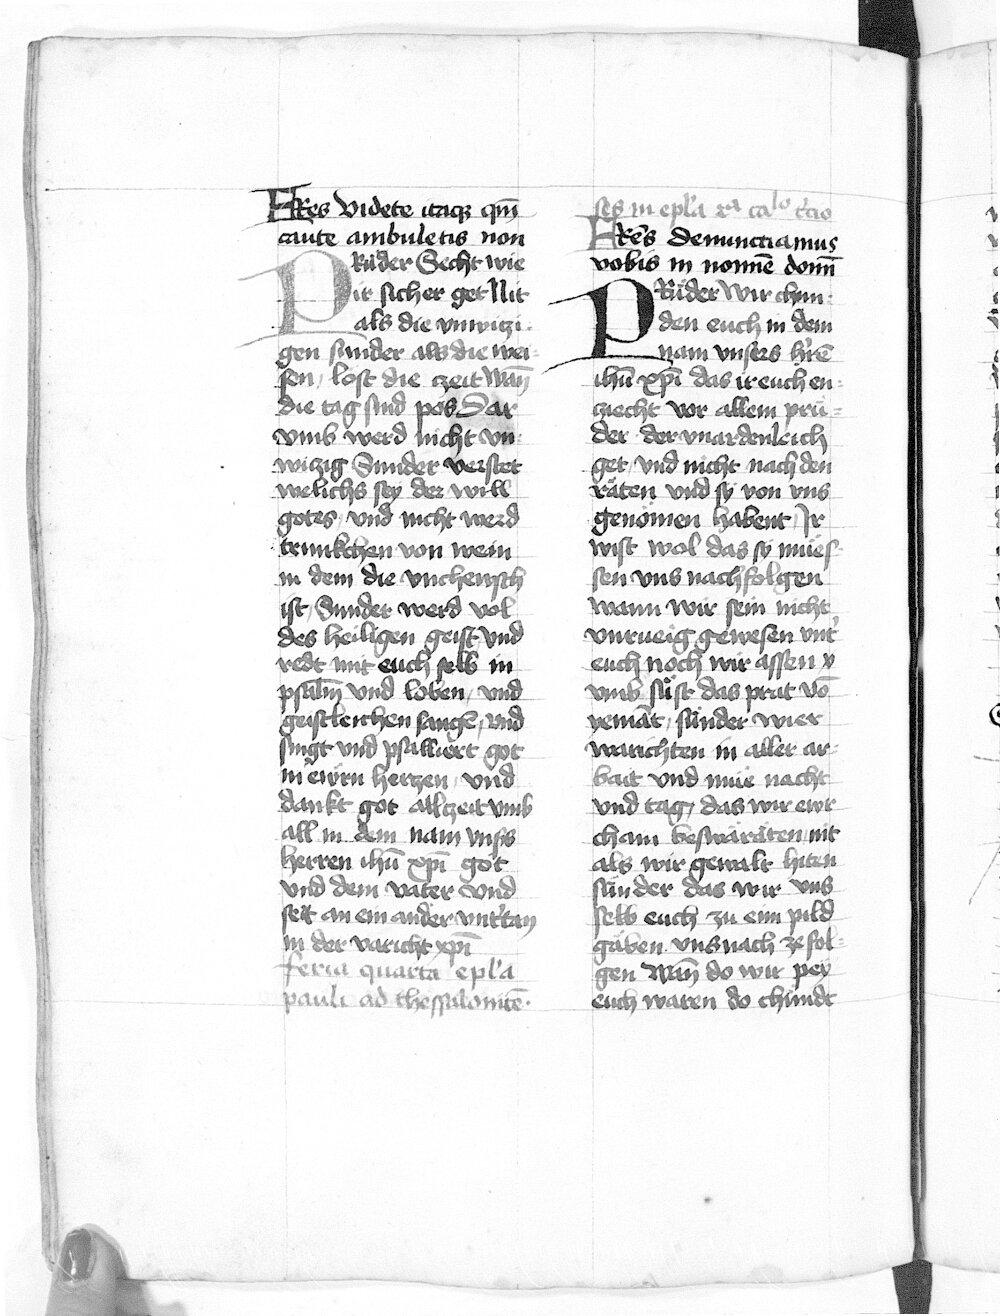 FRes Videte itaqz qm̄
caute ambuletis non
PRüder Secht wie
ir sicher get Nit
als die vnwiczi-
gen sunder als die wei-
sen / löst die czeit Wañ
die tag sind pos Dar
vmb werd nicht vn-
wiczig Sunder verstet
welichs sey der will
gotes / vnd nicht werd
trunkchen von wein
in dem die vnchewsch
ist / Sunder werd vol
des heiligen geist / vnd
redt mit euch selb in
psalm̄ vnd loben / vnd
geistleichen sangē / vnd
singt vnd psalliert got
in ewrn herczen / vnd
dankt got allczeit vmb
all in dem nam vnsˢs
herren ihū xpī got
vnd dem vater vnd
seit an ein ander vnttan
in der varicht xpī
feria quarta epl'a
pauli ad thessalonicē
ses in epl'a 2ª calo tˢcio
FRēs denunctiamus
vobis in nomīe domī
PRüder Wir chün-
den euch in dem
nam vnsers hˢrē
ihū xpī das ir euch en-
cziecht vor allem prü-
der der vnardenleich
get vnd nicht nach den
räten vnd sy von vns
genomen habent / Ir
wist wol das sy mües-
sen vns nachfolgen
wann wir sein nicht
vnrueig gewesen vntˢ
euch noch wir assen
vmb süst das prat vō
yemāt / sünder wier
warichten in aller ar-
bait vnd müe nacht
vnd tag / das wir ewr
cham beswäräten nit
als wir gewalt hiten
sünder das wir vns
selb euch zu eim pild
gäben vns nach ze fol-
gen Wañ do wir pey
euch waren do chündt